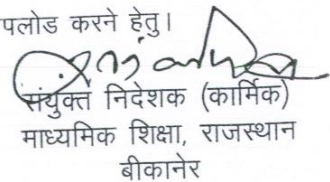 पलोड करने हेतु।
संयुक्त निदेशक (कार्मिक)
माध्यमिक शिक्षा, राजस्थान
बीकानेर